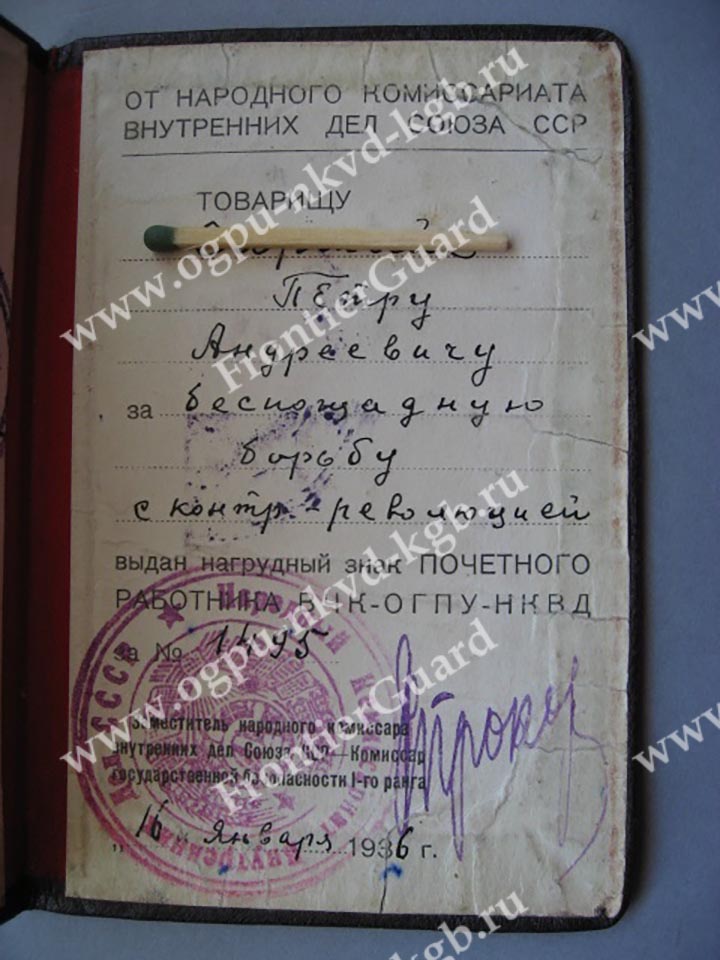 ОТ НАРОДНОГО КОМИССАРИАТА
ВНУТРЕННИХ ДЕЛ СОЮЗА ССР
ТОВАРИЩУ
Петру
Андреевичу
за беспощадную
борьбу
с контр-революцией
выдан нагрудный знак ПОЧЕТНОГО
РАБОТНИКА ВЧК-ОГПУ-НКВД
за №
Заместитель народного комиссара
внутренних Дел Союза ССР—Комиссар
государственной безопасности 1-го ранга
„16" января 1936 г.
www.ogpu-nkvd-kgb.ru
FrontierGuard
www.ogpu-nkvd-kgb.ru
FrontierGuard